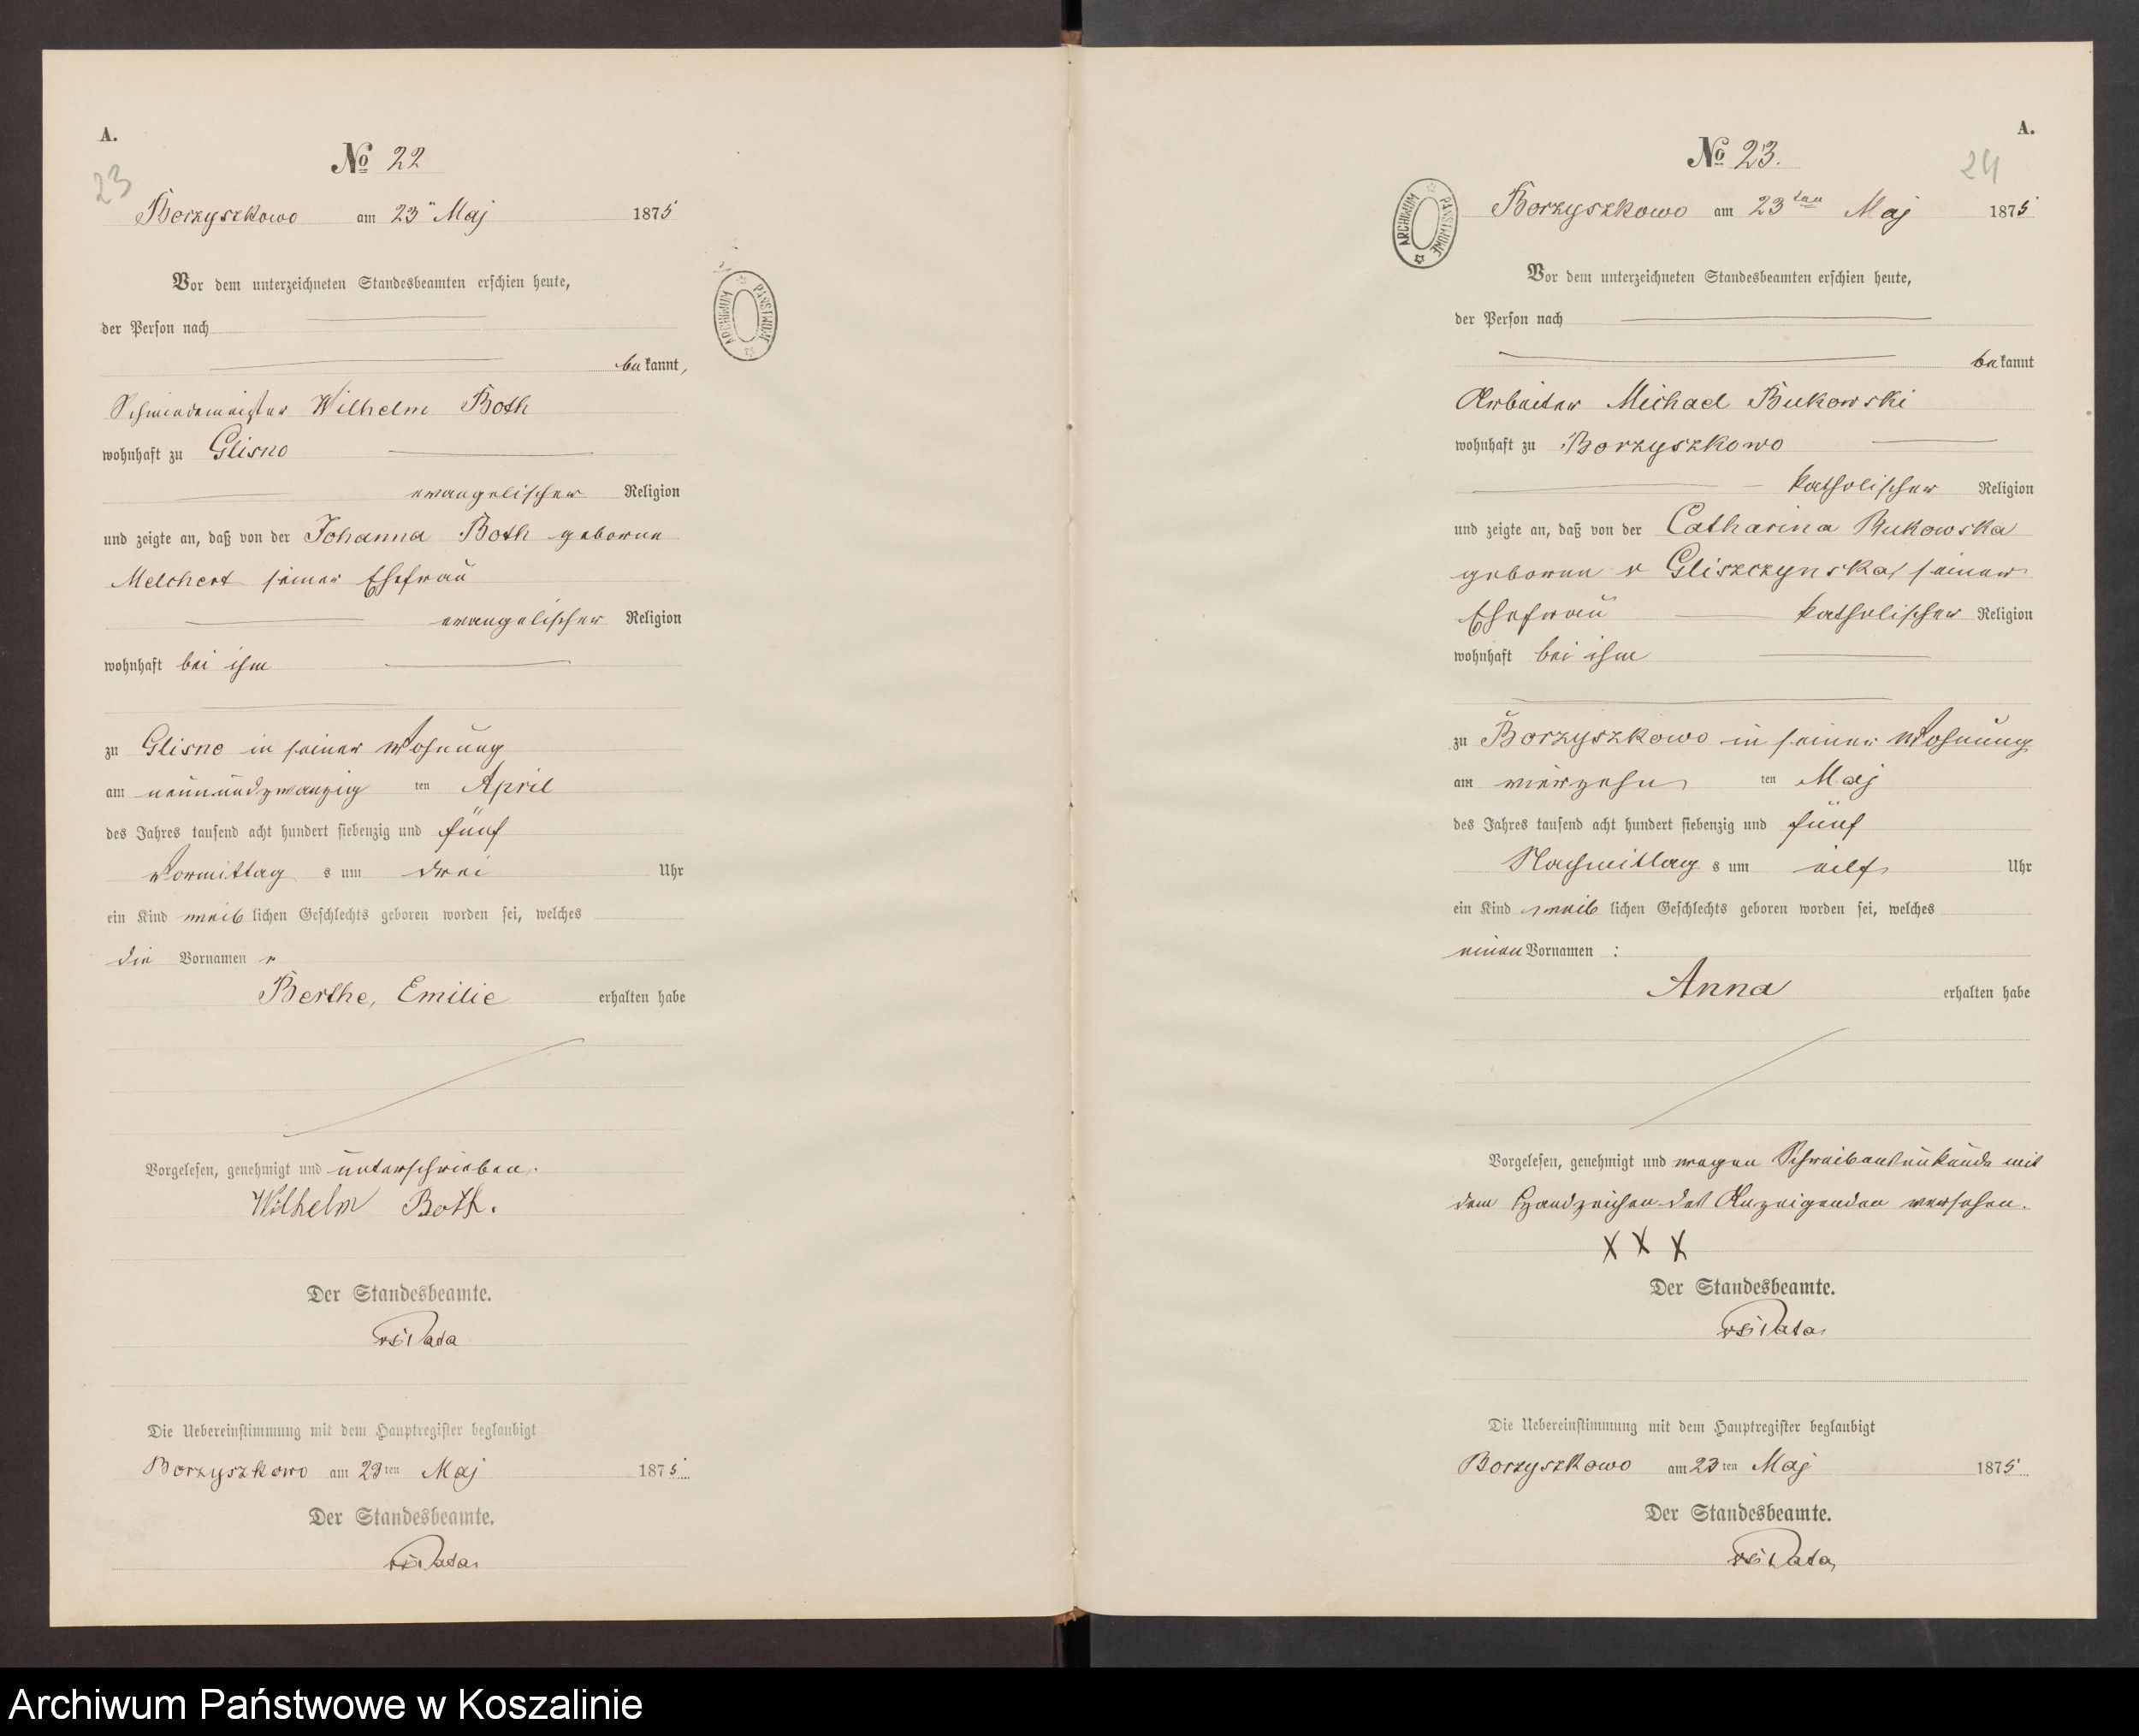 A.
23
No 22
Borzyszkowo am 23" Maj 1875
Vor dem unterzeichneten Standesbeamten erschien heute,
der Person nach
bekannt,
Schmiedemeister Wilhelm Both
wohnhaft zu Glisno
evangelischer Religion
und zeigte an, daß von der Johanna Both geborne
Melchert seiner Ehefrau
evangelischer Religion
wohnhaft bei ihm
zu Glisno in seiner Wohnung
am neunundzwanzig ten April
des Jahres tausend acht hundert siebenzig und fünf
Vormittag s um drei Uhr
ein Kind weib lichen Geschlechts geboren worden sei, welches
die Vornamen
Berthe, Emilie erhalten habe
Vorgelesen, genehmigt und unterschrieben.
Wilhelm Both.
Der Standesbeamte.
Die Uebereinstimmung mit dem Hauptregister beglaubigt
Borzyszkowo am 23ten Maj 1875
Der Standesbeamte.
ARCHIWUM PAŃSTWOWE
A.
24
No 23.
Borzyszkowo am 23ten Maj 1875
ARCHIWUM PAŃSTWOWE
Vor dem unterzeichneten Standesbeamten erschien heute,
der Person nach
bekannt
Arbeiter Michael Bukowski
wohnhaft zu Borzyszkowo
katholischer Religion
und zeigte an, daß von der Catharina Bukowska
geborene Gliszczynska, seiner
Ehefrau katholischer Religion
wohnhaft bei ihm
zu Borzyszkowo in seiner Wohnung
am vierzehn ten Maj
des Jahres tausend acht hundert siebenzig und fünf
Nachmittag s um eilf Uhr
ein Kind weib lichen Geschlechts geboren worden sei, welches
einen Vornamen :
Anna erhalten habe
Vorgelesen, genehmigt und wegen Schreibensunkunde mit
dem Handzeichen des Anzeigenden versehen.
X X X
Der Standesbeamte.
Die Uebereinstimmung mit dem Hauptregister beglaubigt
Borzyszkowo am 23 ten Maj 1875
Der Standesbeamte.
Archiwum Państwowe w Koszalinie